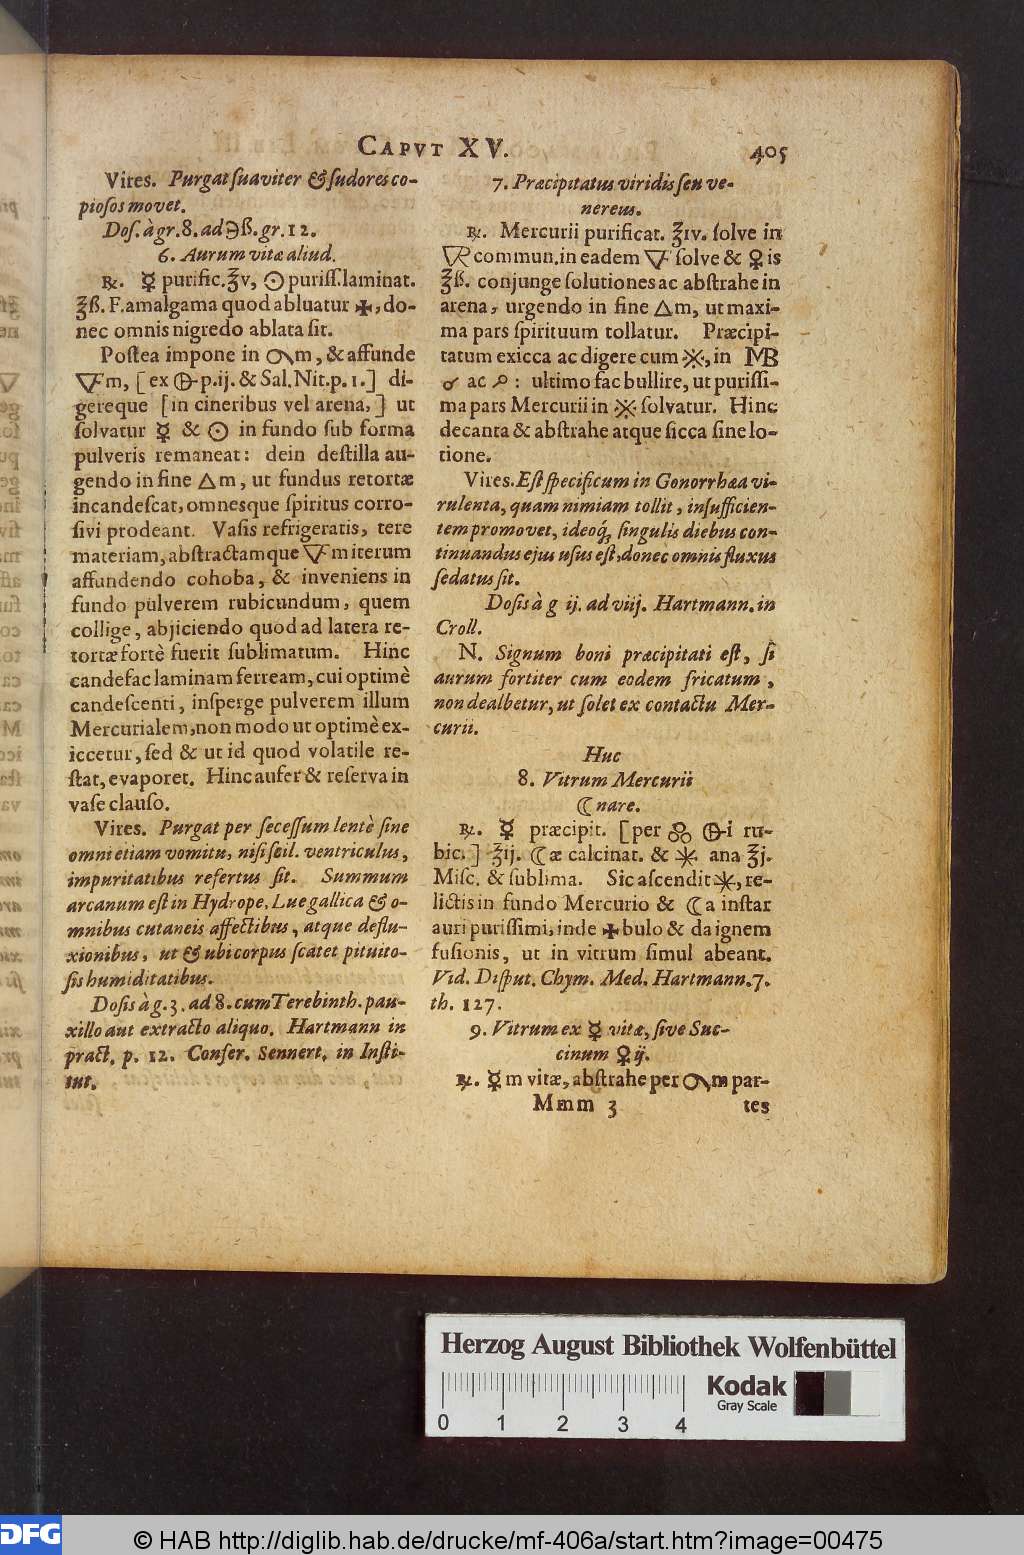 CAPVT XV.
405
Vires. Purgat ſuaviter & ſudores co-
pioſos movet.
Doſ. à gr. 8. ad ℈ß. gr. 12.
6. Aurum vitæ aliud.
℞. ☿ purific. ℥v, ☉ puriſſ. laminat.
℥ß. F. amalgama quod abluatur ✠, do-
nec omnis nigredo ablata ſit.
Poſtea impone in m, & affunde
m, [ex p. ij. & Sal. Nit. p. 1.] di-
gereque [in cineribus vel arena,] ut
ſolvatur ☿ & ☉ in fundo ſub forma
pulveris remaneat: dein deſtilla au-
gendo in fine △m, ut fundus retortæ
incandeſcat, omnesque ſpiritus corro-
ſivi prodeant. Vaſis refrigeratis, tere
materiam, abſtractamque m iterum
affundendo cohoba, & inveniens in
fundo pulverem rubicundum, quem
collige, abjiciendo quod ad latera re-
tortæ fortè fuerit ſublimatum. Hinc
candefac laminam ferream, cui optimè
candeſcenti, inſperge pulverem illum
Mercurialem, non modo ut optimè ex-
iccetur, ſed & ut id quod volatile re-
ſtat, evaporet. Hinc aufer & reſerva in
vaſe clauſo.
Vires. Purgat per ſeceſſum lentè ſine
omni etiam vomitu, niſi ſcil. ventriculus,
impuritatibus refertus ſit. Summum
arcanum eſt in Hydrope, Lue gallica & o-
mnibus cutaneis affectibus, atque deflu-
xionibus, ut & ubi corpus ſcatet pituito-
ſis humiditatibus.
Doſis à g. 3. ad 8. cum Terebinth. pau-
xillo aut extracto aliquo. Hartmann in
pract. p. 12. Confer. Sennert. in Inſti-
tut.
7. Præcipitatus viridis ſeu ve-
nereus.
℞. Mercurii purificat. ℥iv. ſolve in
commun. in eadem ſolve & ♀is
℥ß. conjunge ſolutiones ac abſtrahe in
arena, urgendo in fine △m, ut maxi-
ma pars ſpirituum tollatur. Præcipi-
tatum exicca ac digere cum , in MB
♂ ac : ultimo fac bullire, ut puriſſi-
ma pars Mercurii in ſolvatur. Hinc
decanta & abſtrahe atque ſicca ſine lo-
tione.
Vires. Eſt ſpecificum in Gonorrhæa vi-
rulenta, quam nimiam tollit, inſufficien-
tem promovet, ideoq́; ſingulis diebus con-
tinuandus ejus uſus eſt, donec omnis fluxus
ſedatus ſit.
Doſis à g ij. ad viij. Hartmann. in
Croll.
N. Signum boni præcipitati eſt, ſi
aurum fortiter cum eodem fricatum,
non dealbetur, ut ſolet ex contactu Mer-
curii.
Huc
8. Vitrum Mercurii
☾nare.
℞. ☿ præcipit. [per i ru-
bic.] ℥ij. ☾æ calcinat. & ana ℥j.
Miſc. & ſublima. Sic aſcendit , re-
lictis in fundo Mercurio & ☾a inſtar
auri puriſſimi, inde ✠bulo & da ignem
fuſionis, ut in vitrum ſimul abeant.
Vid. Diſput. Chym. Med. Hartmann. 7.
th. 127.
9. Vitrum ex ☿ vitæ, ſive Suc-
cinum ♀ij.
℞. ☿m vitæ, abſtrahe per m par-
Mmm 3
tes
Herzog August Bibliothek Wolfenbüttel
0 1 2 3 4
Kodak
Gray Scale
DFG
© HAB http://diglib.hab.de/drucke/mf-406a/start.htm?image=00475